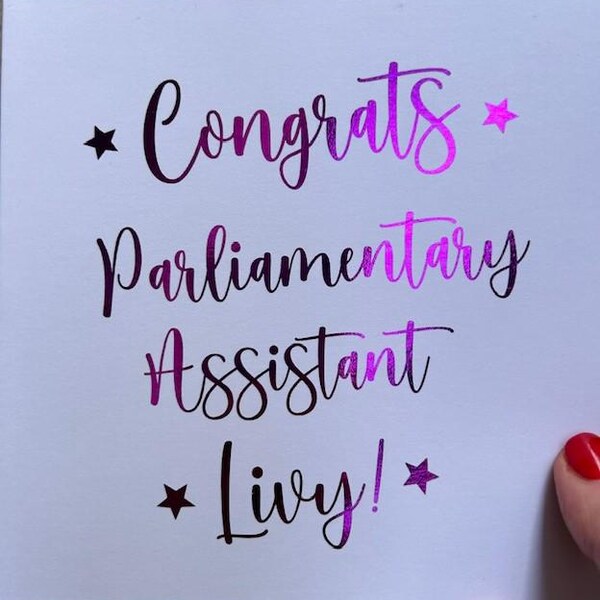 Congrats
Parliamentary
Assistant
Livy!